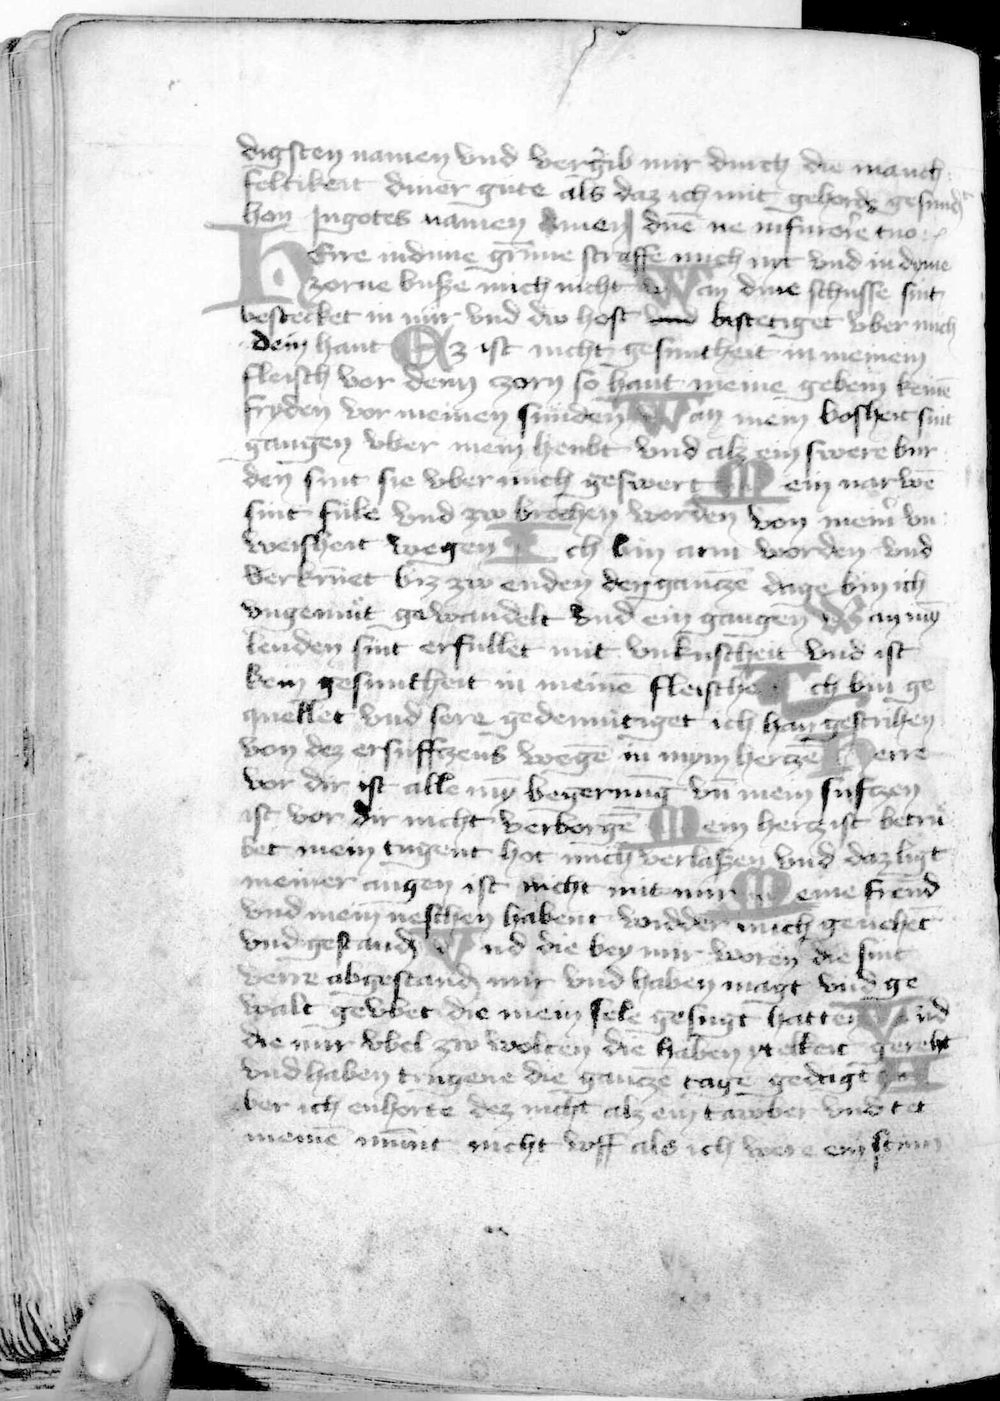 digsten namen vnd vergib mir durch die manch
feltikeit diner gute als daz ich mit gehorde gesund
hon Jngotes namen Amen dnē ne infurore tuo
HErre indime grīme straffe mich nit vnd in dyme
zorne busze mich nicht Wan dine schusse sint
bestecket in mir vnd dw host bestetiget vber mich
dein hant Ez ist nicht gesuntheit in meinem
fleisch vor dem zorn so hant meine gebein keine
fryden vor meinen sunden Wan mein bosheit sint
gangen vber mein heubt vnd alz ein swere bur
den sint sie vber mich geswert Mein narwē
sint fule vnd zw brochen worden von mein vn
weisheit wegen Ich bin arm worden vnd
verkrūet biz zw enden den gancze dage bin ich
vngemut gewandelt vnd ein gangen Wan myn
lenden sint erfullet mit vnkuscheit vnd ist
kein gesuntheit in meinē fleische Ich bin ge
quellet vnd sere gedemutiget ich han geschrihen
von dez ersuffczens wegē in mym herczē Herre
vor dir ist alle my begerung vn mein sufczen
ist vor dir nicht verborgē Mein hercz ist betru
bet mein tugent hot mich verlaszen vnd daz ligt
meiner augen ist nicht mit mir Meine frend
vnd mein neschen habent widder mich genehet
vnd gestand Vnd die bey mir woren die sint
verre abgestand mir vnd haben magt vnd ge
walt gevbet die mein sele gesugt hatten Vnd
die mir vbel zw wolten die haben ytelkeit gereht
vnd haben trugene die gancze tage gedagt A
ber ich enhorte dez nicht alz ein tawber vnd tet
meinē munt nicht vff als ich were ein stum